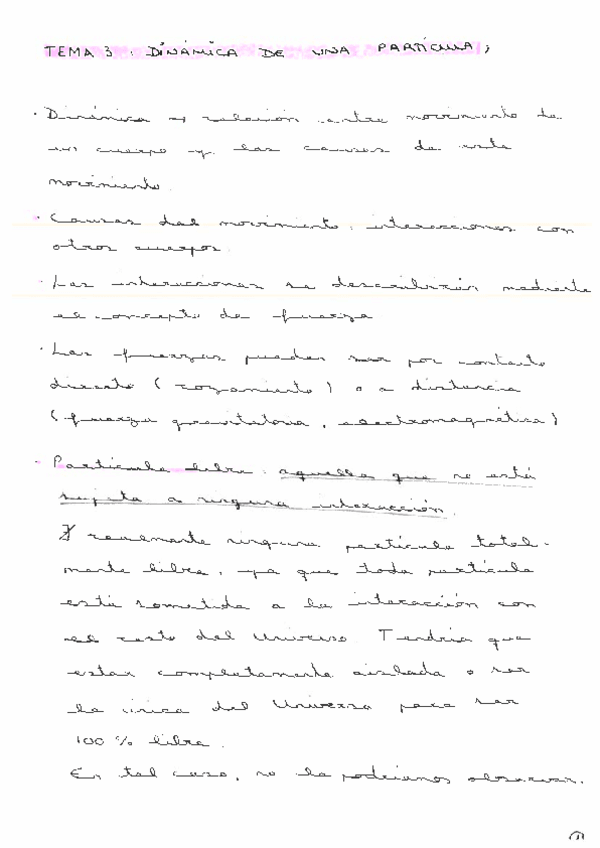 TEMA 3: DINÁMICA DE UNA PARTÍCULA;
· Dinámica → relación entre movimiento de
un cuerpo y las causas de este
movimiento.
· Causas del movimiento: interacciones con
otros cuerpos.
· Las interacciones se describirán mediante
el concepto de fuerza
· Las fuerzas pueden ser por contacto
directo (rozamiento) o a distancia
(fuerza gravitatoria, electromagnética)
· Partícula libre: aquella que no está
sujeta a ninguna interacción.
∄ realmente ninguna partícula total-
mente libre, ya que toda partícula
está sometida a la interacción con
el resto del Universo. Tendría que
estar completamente aislada o ser
la única del Universo para ser
100 % libre.
En tal caso, no la podríamos observar.
1